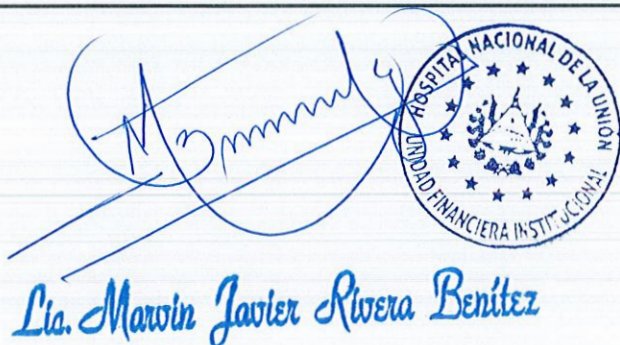 HOSPITAL NACIONAL DE LA UNIÓN
UNIDAD FINANCIERA INSTITUCIONAL
Lic. Marvin Javier Rivera Benítez